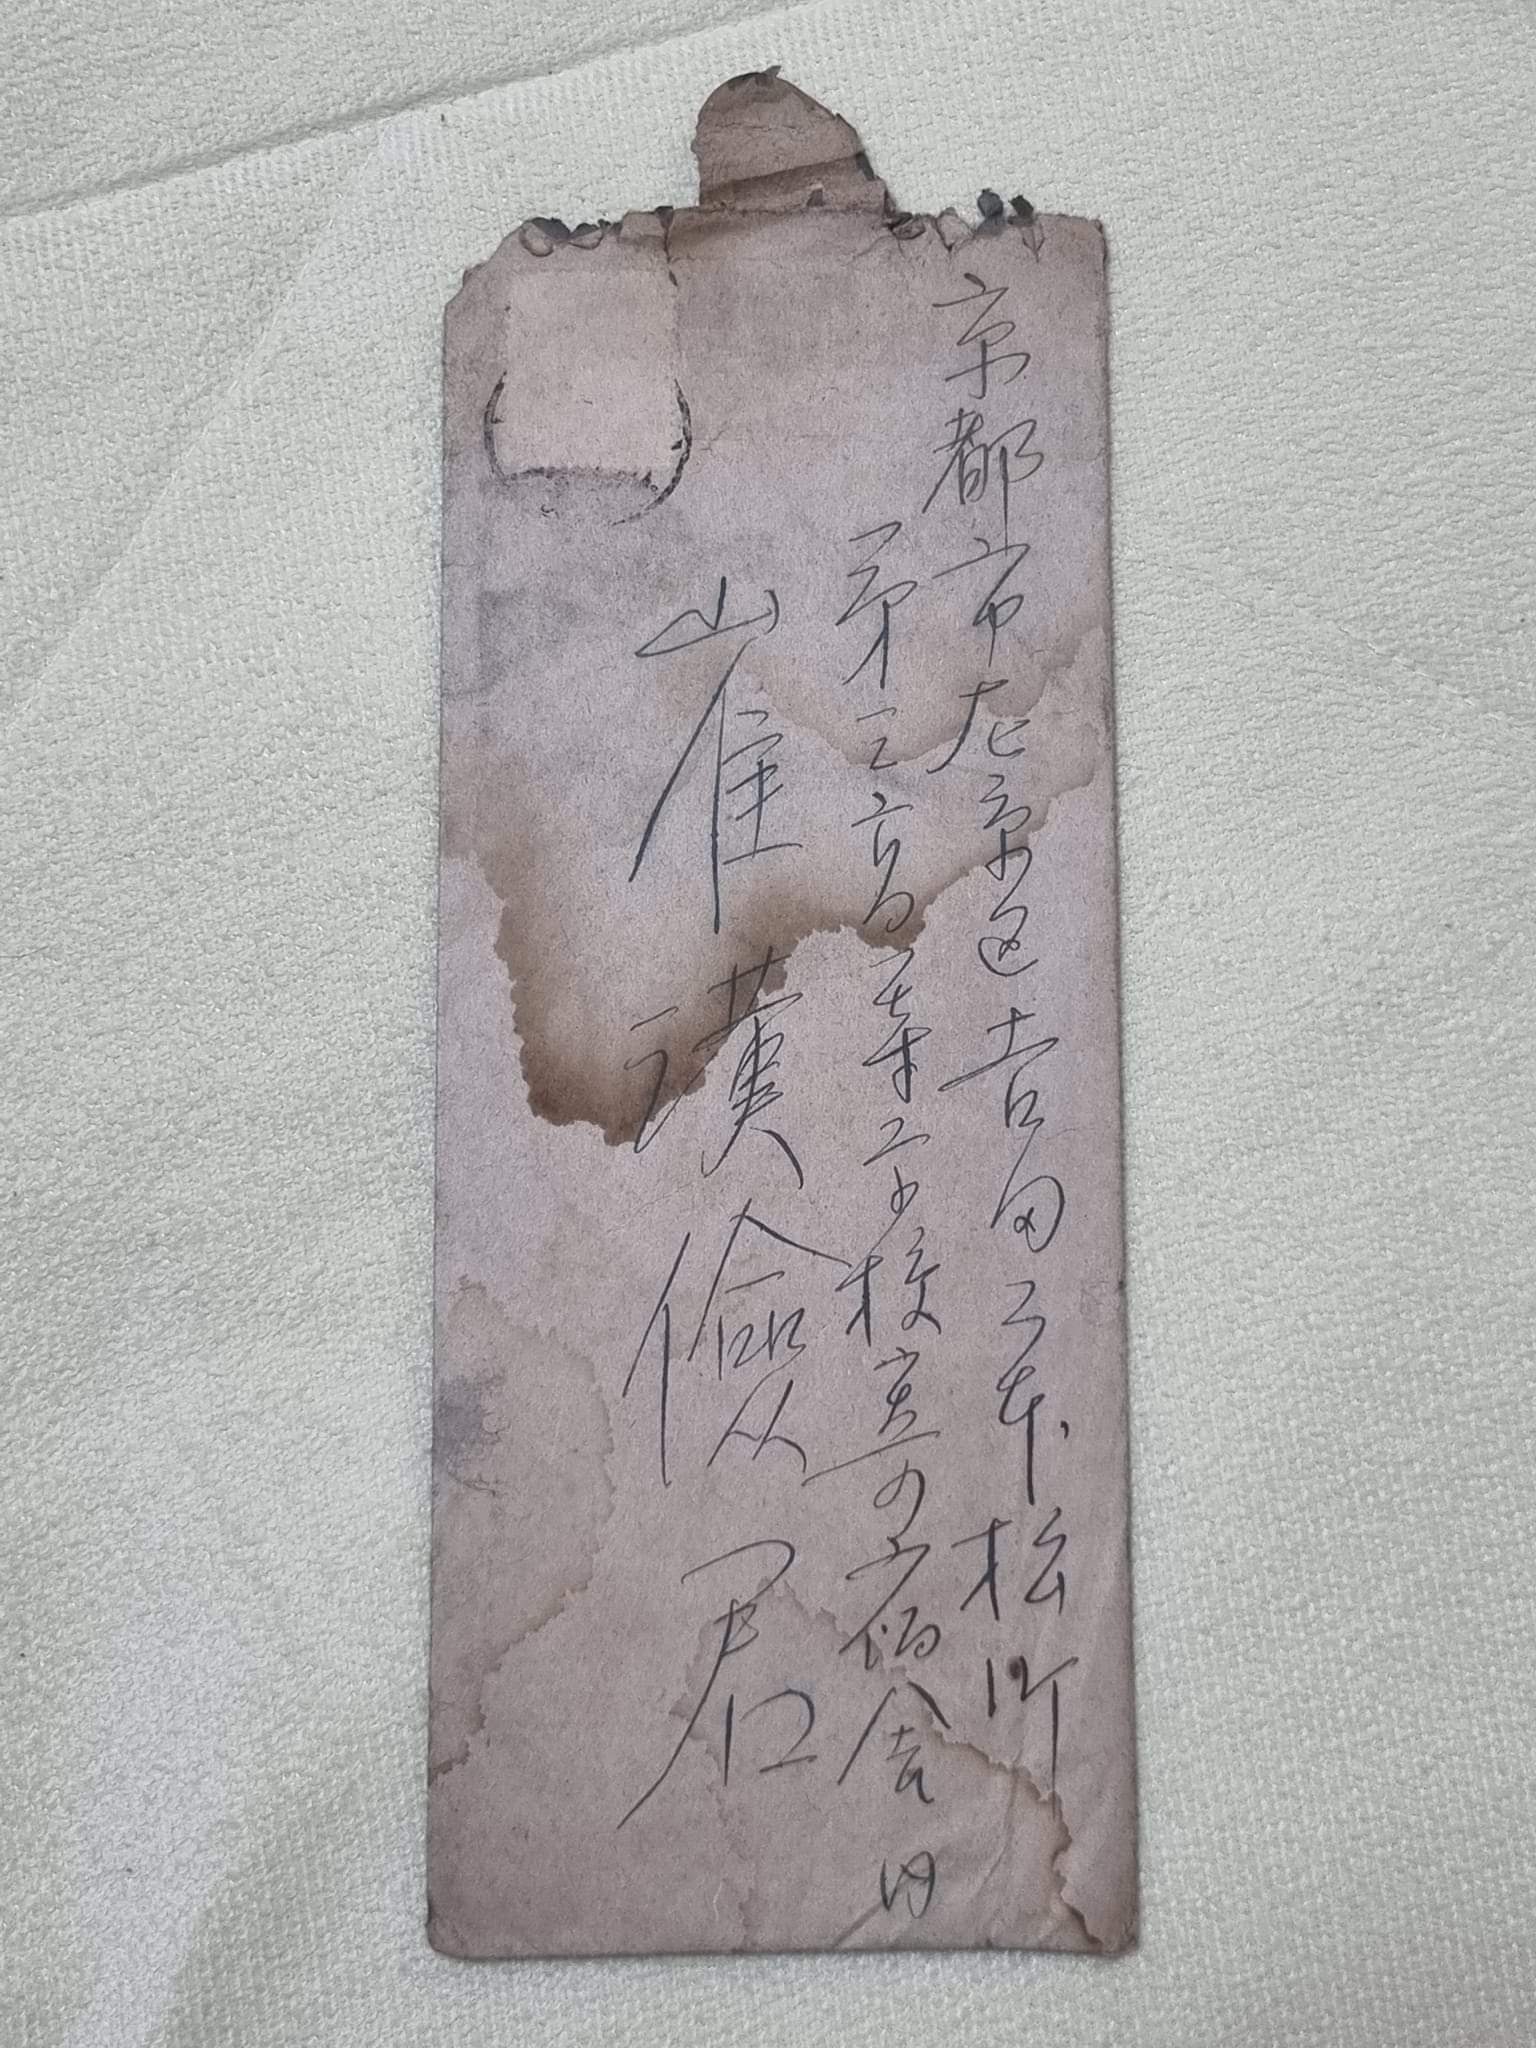 京都市左京区吉田二本松町
第三高等学校寄宿舎内
崔漢儉君